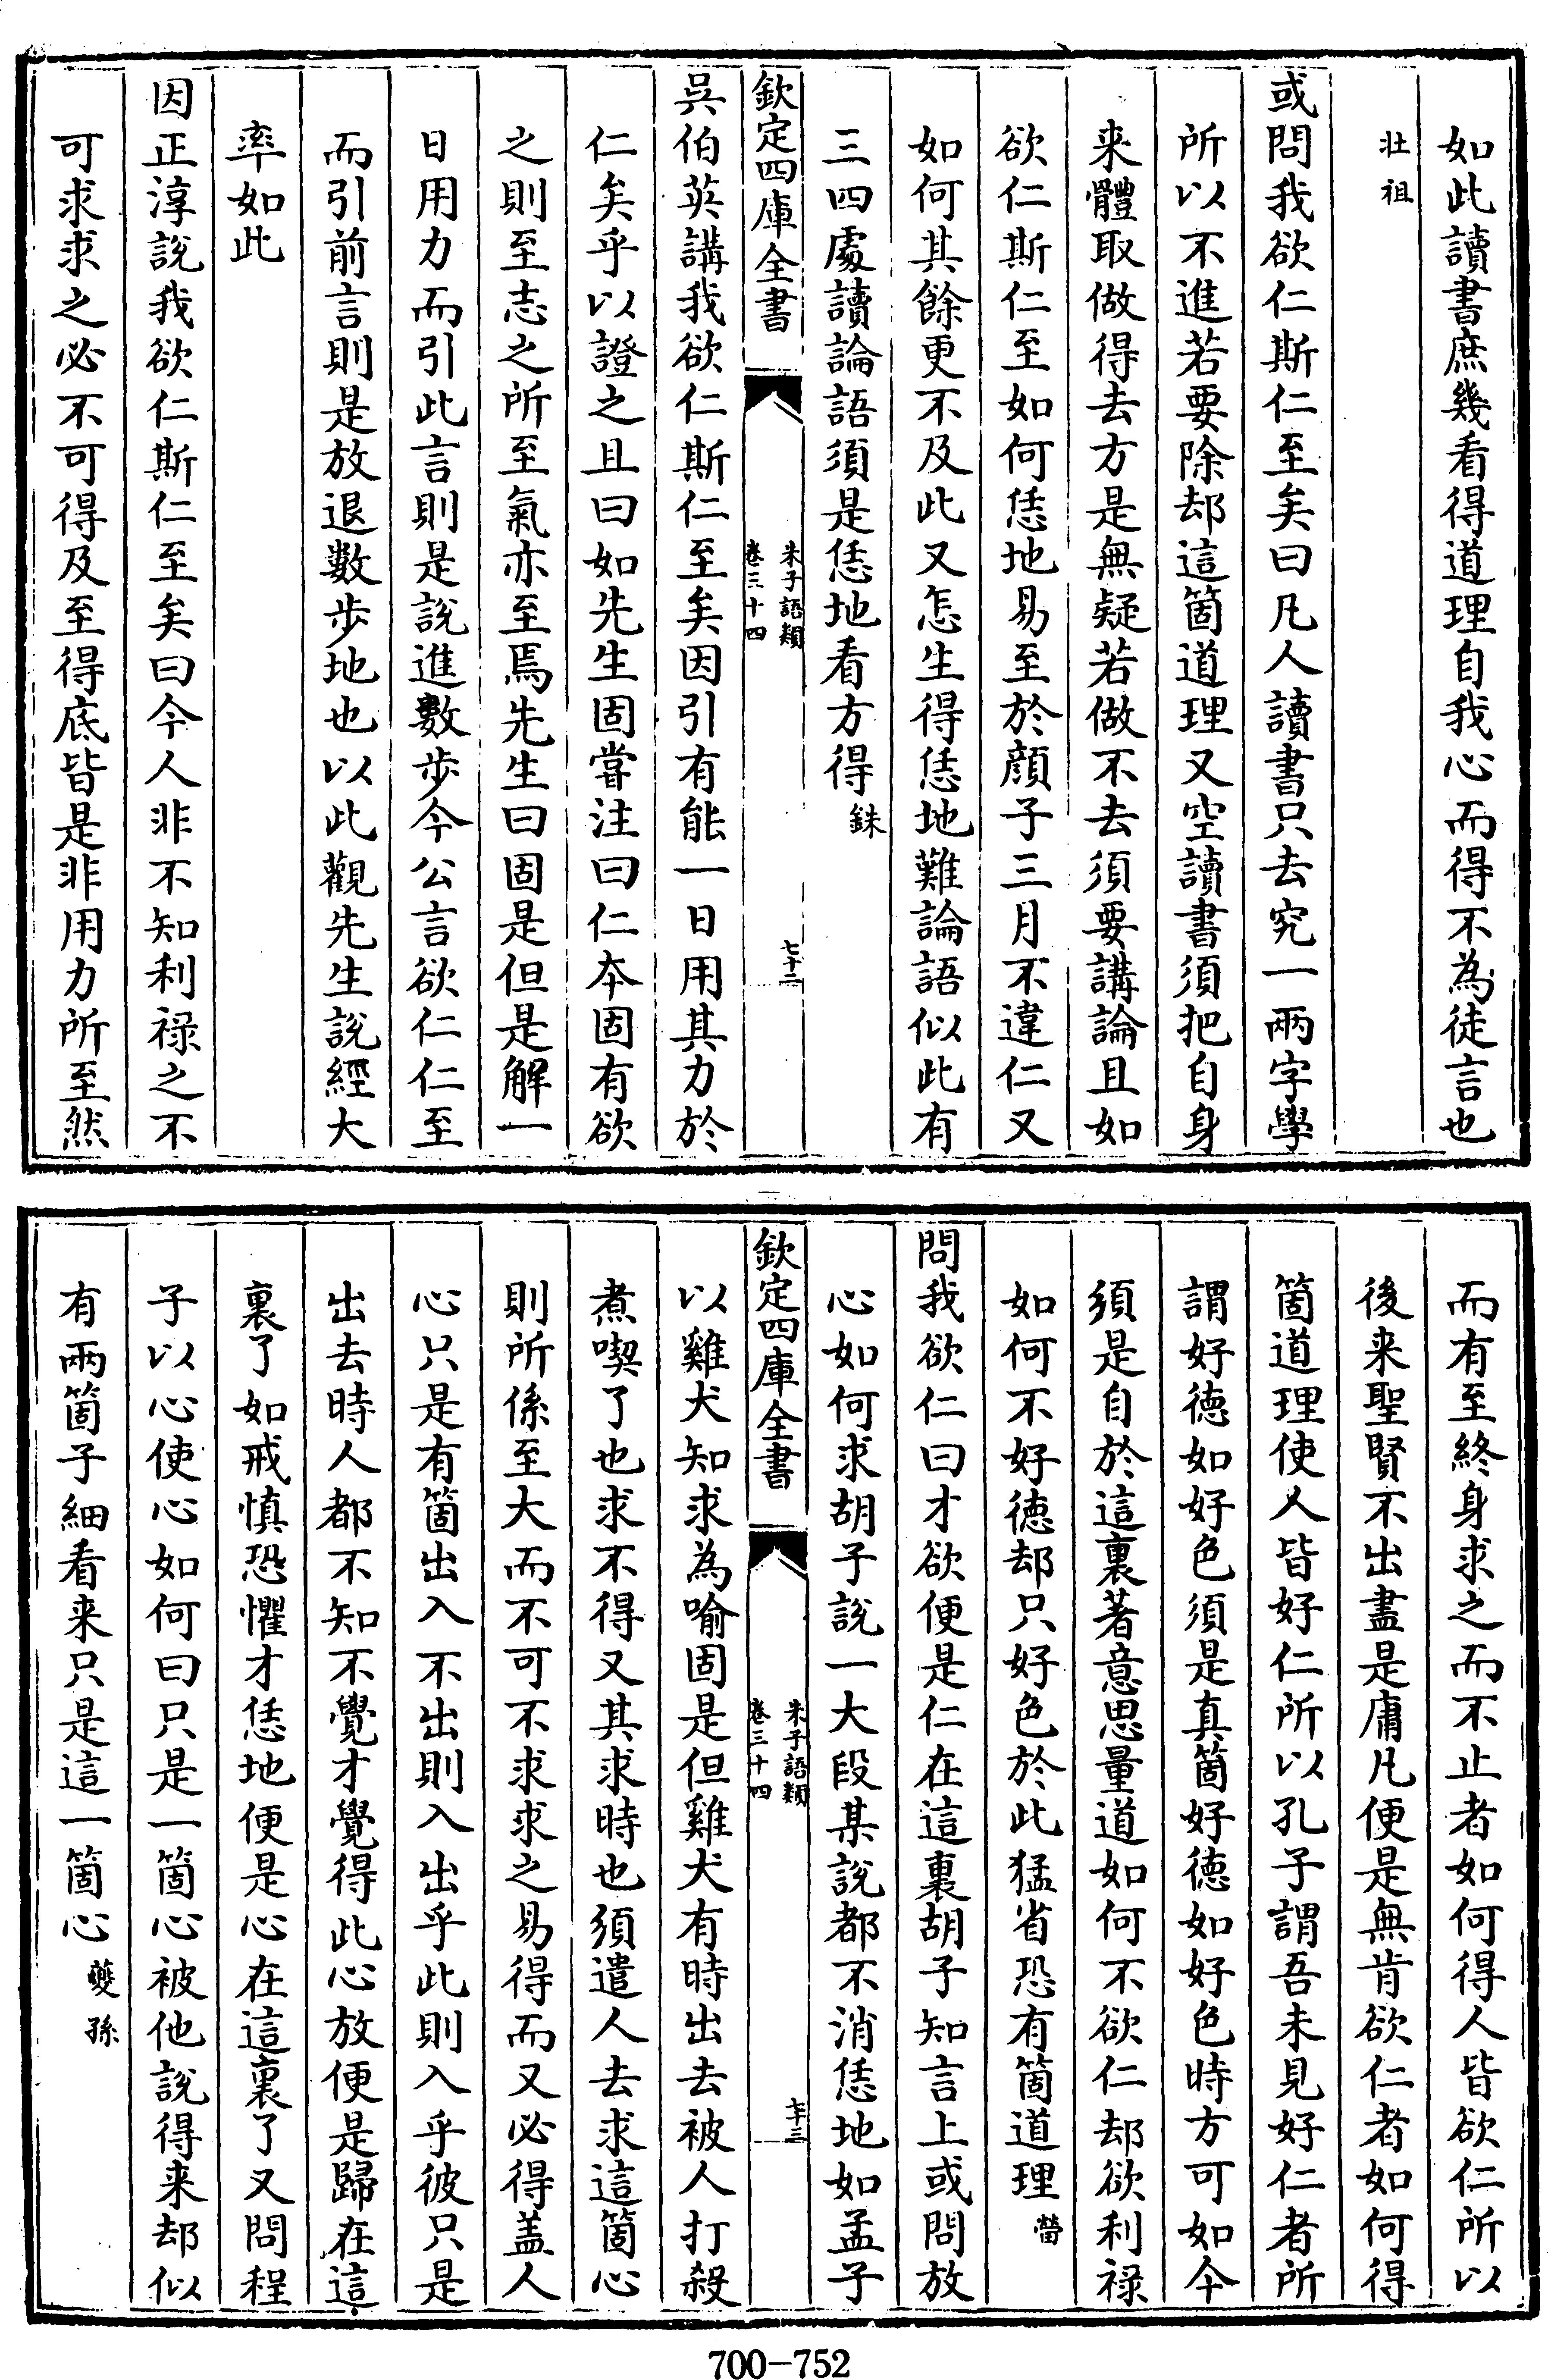 如此讀書庶幾看得道理自我心而得不為徒言也
壯祖
或問我欲仁斯仁至矣曰凡人讀書只去究一兩字學
所以不進若要除却這箇道理又空讀書須把自身
来體取做得去方是無疑若做不去須要講論且如
欲仁斯仁至如何恁地易至於顔子三月不違仁又
如何其餘更不及此又怎生得恁地難論語似此有
三四處讀論語須是恁地看方得銖
欽定四庫全書
朱子語類
卷三十四
七十二
吳伯英講我欲仁斯仁至矣因引有能一日用其力於
仁矣乎以證之且曰如先生固嘗注曰仁本固有欲
之則至志之所至氣亦至焉先生曰固是但是解一
日用力而引此言則是說進數步今公言欲仁仁至
而引前言則是放退數步地也以此觀先生說經大
率如此
因正淳說我欲仁斯仁至矣曰今人非不知利祿之不
可求求之必不可得及至得底皆是非用力所至然
而有至終身求之而不止者如何得人皆欲仁所以
後来聖賢不出盡是庸凡便是無肯欲仁者如何得
箇道理使人皆好仁所以孔子謂吾未見好仁者所
謂好德如好色須是真箇好德如好色時方可如今
須是自於這裏著意思量道如何不欲仁却欲利祿
如何不好德却只好色於此猛省恐有箇道理𤲟
問我欲仁曰才欲便是仁在這裏胡子知言上或問放
心如何求胡子說一大段某說都不消恁地如孟子
欽定四庫全書
朱子語類
卷三十四
七十三
以雞犬知求為喻固是但雞犬有時出去被人打殺
煮喫了也求不得又其求時也須遣人去求這箇心
則所係至大而不可不求求之易得而又必得盖人
心只是有箇出入不出則入出乎此則入乎彼只是
出去時人都不知不覺才覺得此心放便是歸在這
裏了如戒慎恐懼才恁地便是心在這裏了又問程
子以心使心如何曰只是一箇心被他說得来却似
有兩箇子細看来只是這一箇心夔孫
700-752